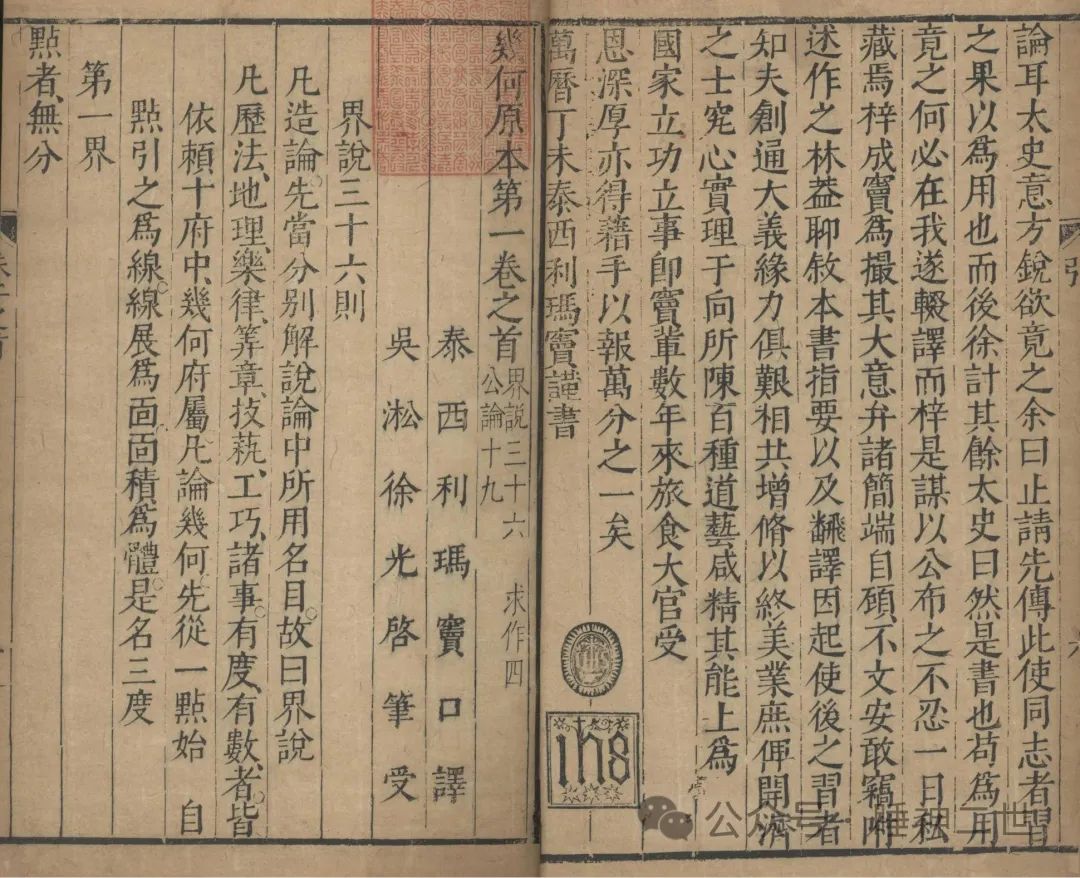 論耳太史意方銳欲竟之余曰止請先傳此使同志者習
之果以爲用也而後徐計其餘太史曰然是書也苟爲用
竟之何必在我遂輟譯而梓是謀以公布之不忍一日私
藏焉梓成竇爲撮其大意弁諸簡端自顧不文安敢竊附
述作之林葢聊敘本書指要以及飜譯因起使後之習者
知夫創通大義緣力俱艱相共增脩以終美業庶俾開濟
之士究心實理于向所陳百種道藝咸精其能上爲
國家立功立事卽竇輩數年來旅食大官受
恩深厚亦得藉手以報萬分之一矣
萬曆丁未泰西利瑪竇謹書
ihs
幾何原本第一卷之首 界說三十六 求作四
公論十九
泰西利瑪竇口譯
吳淞徐光啓筆受
界說三十六則
凡造論先當分別解說論中所用名目故曰界說
凡歷法、地理、樂律、筭章、技藝、工巧、諸事有度、有數者皆
依賴十府中幾何府屬凡論幾何先從一點始 自
點引之爲線線展爲面面積爲體是名三度
第一界
點者、無分
公众号